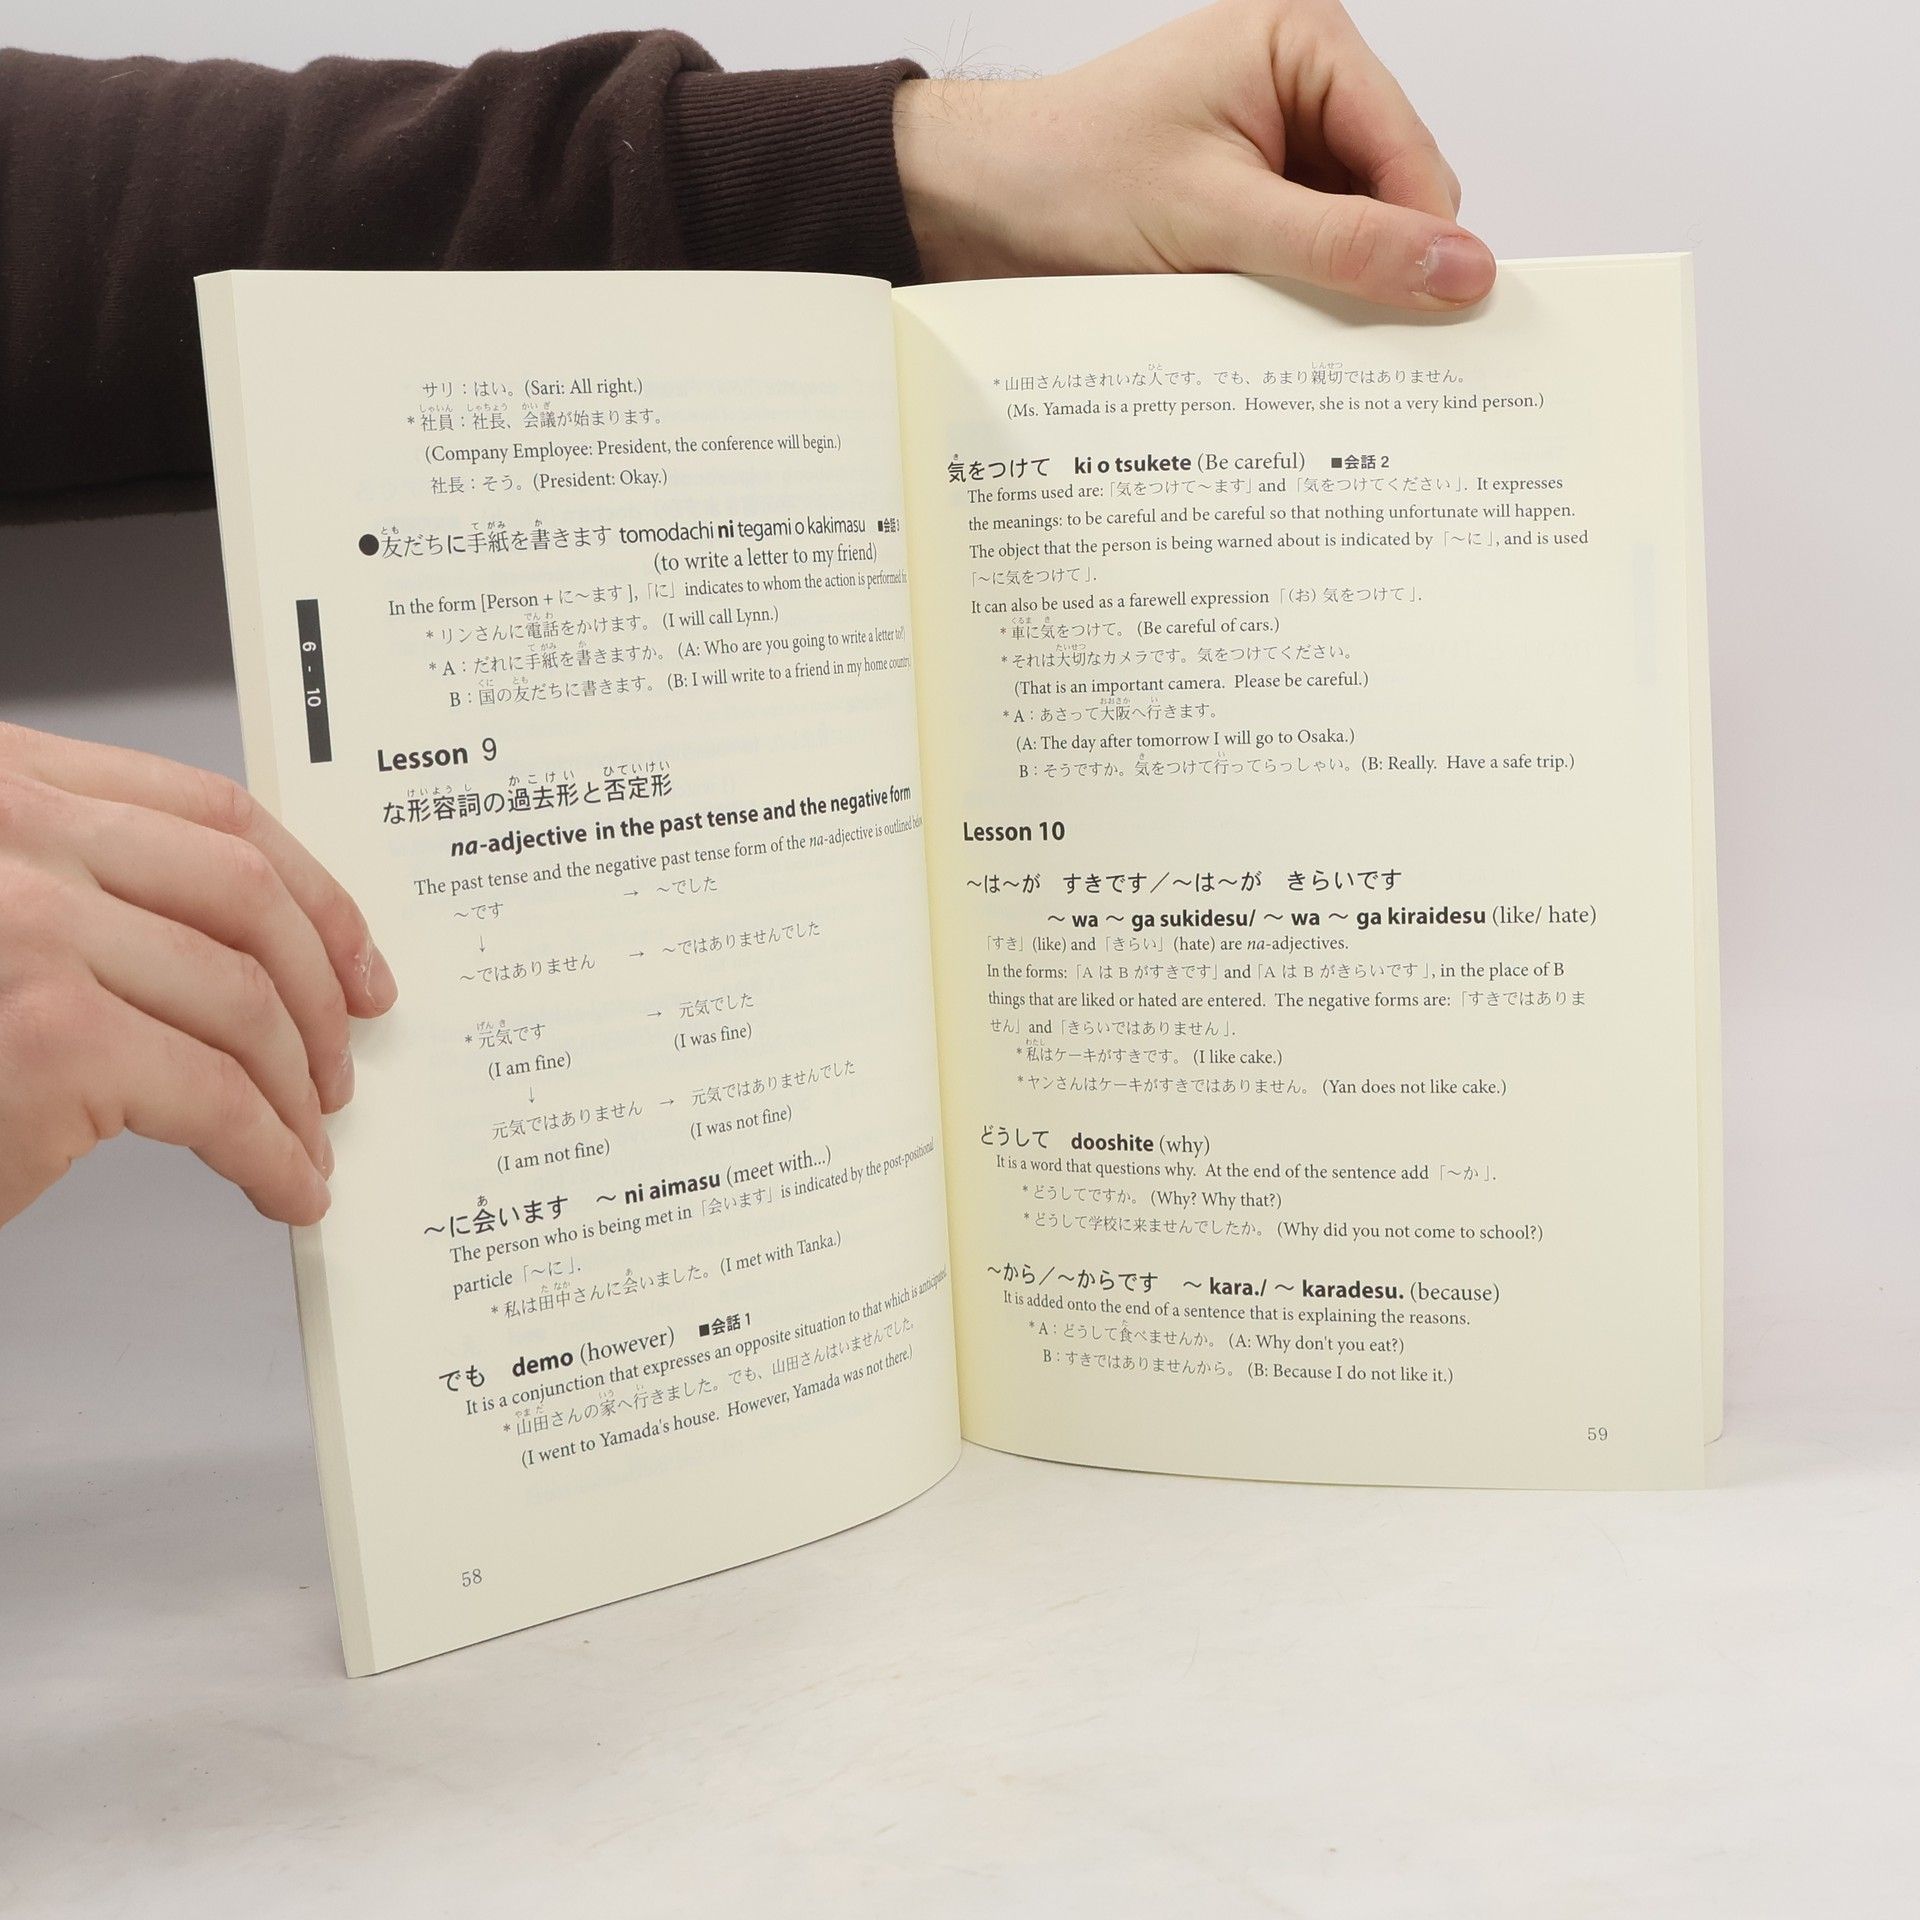 サリ：はい。(Sari: All right.)
*社員：社長、会議が始まります。
(Company Employee: President, the conference will begin.)
社長：そう。(President: Okay.)
●友だちに手紙を書きます tomodachi ni tegami o kakimasu ■会話3
(to write a letter to my friend)
In the form [Person + に〜ます],「に」indicates to whom the action is performed
*リンさんに電話をかけます。 (I will call Lynn.)
*A：だれに手紙を書きますか。 (A: Who are you going to write a letter to?)
B：国の友だちに書きます。 (B: I will write to a friend in my home country.
6 - 10
Lesson 9
な形容詞の過去形と否定形
na-adjective in the past tense and the negative form
The past tense and the negative past tense form of the na-adjective is outlined below
〜です → 〜でした
↓
〜ではありません → 〜ではありませんでした
*元気です → 元気でした
(I am fine) (I was fine)
↓
元気ではありません → 元気ではありませんでした
(I am not fine) (I was not fine)
〜に会います 〜 ni aimasu (meet with...)
The person who is being met in「会います」is indicated by the post-positional
particle「〜に」.
*私は田中さんに会いました。(I met with Tanka.)
でも demo (however) ■会話1
It is a conjunction that expresses an opposite situation to that which is anticipated.
*山田さんの家へ行きました。でも、山田さんはいませんでした。
(I went to Yamada's house. However, Yamada was not there.)
58
*山田さんはきれいな人です。でも、あまり親切ではありません。
(Ms. Yamada is a pretty person. However, she is not a very kind person.)
気をつけて ki o tsukete (Be careful) ■会話2
The forms used are:「気をつけて〜ます」and「気をつけてください」. It expresses
the meanings: to be careful and be careful so that nothing unfortunate will happen.
The object that the person is being warned about is indicated by「〜に」, and is used
「〜に気をつけて」.
It can also be used as a farewell expression「（お）気をつけて」.
*車に気をつけて。 (Be careful of cars.)
*それは大切なカメラです。気をつけてください。
(That is an important camera. Please be careful.)
*A：あさって大阪へ行きます。
(A: The day after tomorrow I will go to Osaka.)
B：そうですか。気をつけて行ってらっしゃい。(B: Really. Have a safe trip.)
Lesson 10
〜は〜が すきです／〜は〜が きらいです
〜 wa 〜 ga sukidesu/ 〜 wa 〜 ga kiraidesu (like/ hate)
「すき」(like) and「きらい」(hate) are na-adjectives.
In the forms:「A は B がすきです」and「A は B がきらいです」, in the place of B
things that are liked or hated are entered. The negative forms are:「すきではありま
せん」and「きらいではありません」.
*私はケーキがすきです。 (I like cake.)
*ヤンさんはケーキがすきではありません。 (Yan does not like cake.)
どうして dooshite (why)
It is a word that questions why. At the end of the sentence add「〜か」.
*どうしてですか。 (Why? Why that?)
*どうして学校に来ませんでしたか。 (Why did you not come to school?)
〜から／〜からです 〜 kara./ 〜 karadesu. (because)
It is added onto the end of a sentence that is explaining the reasons.
*A：どうして食べませんか。 (A: Why don't you eat?)
B：すきではありませんから。 (B: Because I do not like it.)
59